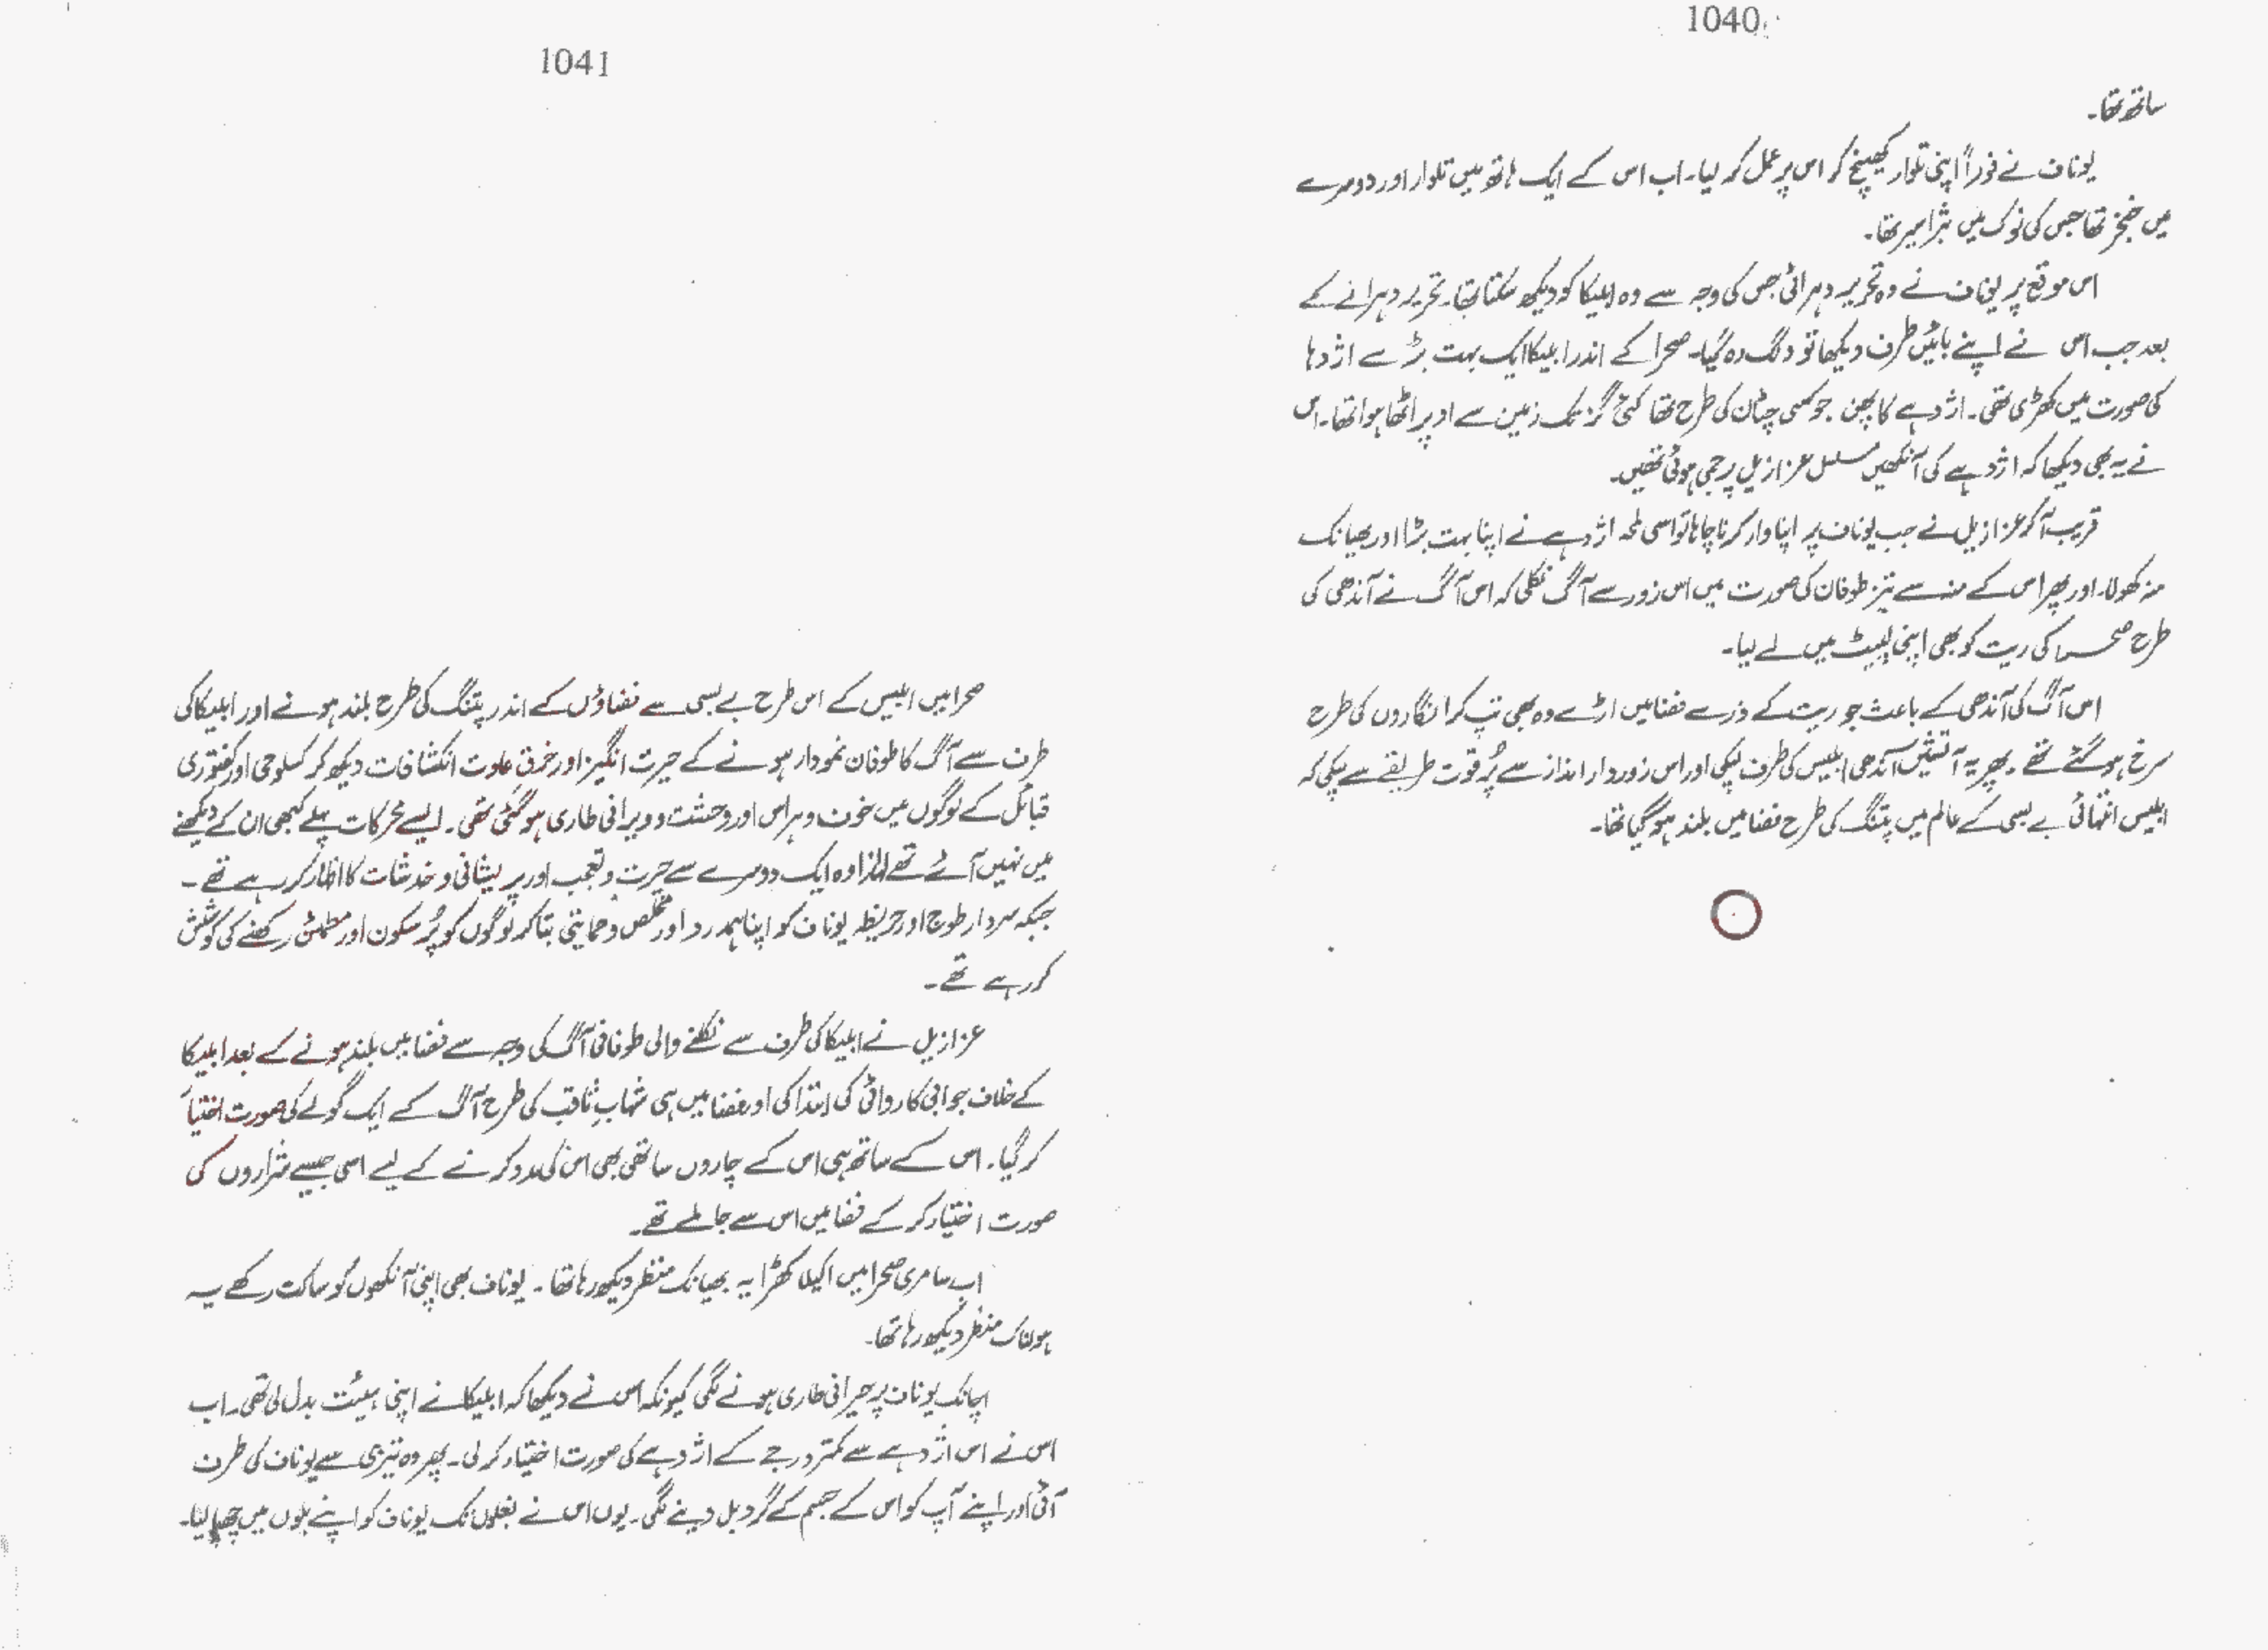 1040
ساتھ تھا۔
یوناف نے فوراً اپنی تلوار کھینچ کر اس پر عمل کر لیا۔ اب اس کے ایک ہاتھ میں تلوار اور دوسرے
میں خنجر تھا جس کی نوک میں بثرا سیر تھا۔
اس موقع پر یوناف نے وہ تحریر دہرائی جس کی وجہ سے وہ ابلیکا کو دیکھ سکتا تھا۔ تحریر دہرانے کے
بعد جب اس نے اپنے بائیں طرف دیکھا تو دنگ رہ گیا۔ صحرا کے اندر ابلیکا ایک بہت بڑے اژدہا
کی صورت میں کھڑی تھی۔ اژدہے کا پھن جو کسی چٹان کی طرح تھا کئی گز تک زمین سے اوپر اٹھا ہوا تھا۔ اس
نے یہ بھی دیکھا کہ اژدہے کی آنکھیں مسلسل عزازیل پر جمی ہوئی تھیں۔
قریب آ کر عزازیل نے جب یوناف پر اپنا وار کرنا چاہا تو اسی لمحہ اژدہے نے اپنا بہت بڑا اور بھیانک
منہ کھولا۔ اور پھر اس کے منہ سے تیز طوفان کی صورت میں اس زور سے آگ نکلی کہ اس آگ نے آندھی کی
طرح صحرا کی ریت کو بھی اپنی لپیٹ میں لے لیا۔
اس آگ کی آندھی کے باعث جو ریت کے ذرے فضا میں اڑے وہ بھی تپ کر انگاروں کی طرح
سرخ ہو گئے تھے۔ پھر یہ آتشیں آندھی ابلیس کی طرف لپکی اور اس زور دار انداز سے پُر قوت طریقے سے لپکی کہ
ابلیس انتہائی بے بسی کے عالم میں پتنگ کی طرح فضا میں بلند ہو گیا تھا۔
1041
صحرا میں ابلیس کے اس طرح بے بسی سے فضاؤں کے اندر پتنگ کی طرح بلند ہونے اور ابلیکا کی
طرف سے آگ کا طوفان نمودار ہونے کے حیرت انگیز اور خرق عادت انکشافات دیکھ کر کسلوحی اور کفتوری
قبائل کے لوگوں میں خوف و ہراس اور وحشت و ویرانی طاری ہو گئی تھی۔ ایسے محرکات پہلے کبھی ان کے دیکھنے
میں نہیں آئے تھے لہٰذا وہ ایک دوسرے سے حیرت و تعجب اور پریشانی و خدشات کا اظہار کر رہے تھے۔
جبکہ سردار طوج اور حریظہ یوناف کو اپنا ہمدرد اور مخلص و حمایتی بتا کر لوگوں کو پُرسکون اور مطمئن رکھنے کی کوشش
کر رہے تھے۔
عزازیل نے ابلیکا کی طرف سے نکلنے والی طوفانی آگ کی وجہ سے فضا میں بلند ہونے کے بعد ابلیکا
کے خلاف جوابی کاروائی کی ابتدا کی اور فضا میں ہی شہابِ ثاقب کی طرح آگ کے ایک گولے کی صورت اختیا
کر گیا۔ اس کے ساتھ ہی اس کے چاروں ساتھی بھی اس کی مدد کرنے کے لیے اسی جیسے شراروں کی
صورت اختیار کر کے فضا میں اس سے جا ملے تھے۔
اب سامری صحرا میں اکیلا کھڑا یہ بھیانک منظر دیکھ رہا تھا۔ یوناف بھی اپنی آنکھوں کو ساکت رکھے یہ
ہولناک منظر دیکھ رہا تھا۔
اچانک یوناف پر حیرانی طاری ہونے لگی کیونکہ اس نے دیکھا کہ ابلیکا نے اپنی ہیئت بدل لی تھی۔ اب
اس نے اس اژدہے سے کمتر درجے کے اژدہے کی صورت اختیار کر لی۔ پھر وہ تیزی سے یوناف کی طرف
آئی اور اپنے آپ کو اس کے جسم کے گرد بل دینے لگی۔ یوں اس نے بغلوں تک یوناف کو اپنے بلوں میں چھپا لیا۔